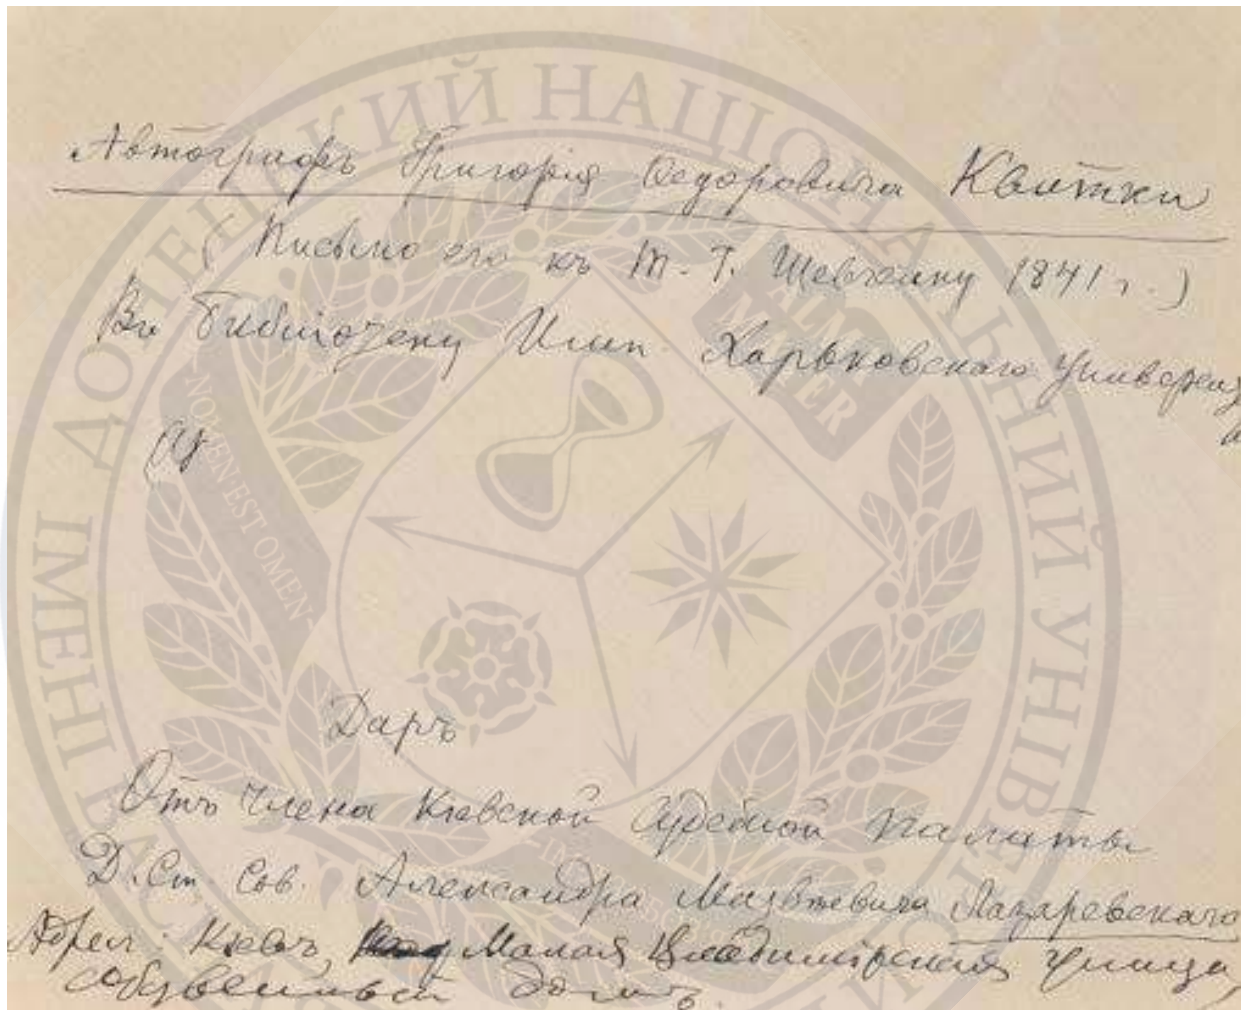 Автографъ Григорія Ѳедоровича Квитки
(Письмо его къ Т. Г. Шевченку 1841 г.)
Въ библіотеку Имп. Харьковскаго Университ
Даръ
Отъ члена Кіевской Судебной Палаты
Д. Ст. Сов. Александра Матвѣевича Лазаревскаго
Адресъ: Кіевъ, Малая Владимірская улица,
собственный домъ.
ІМЕНІ ДОНЕЦЬКИЙ НАЦІОНАЛЬНИЙ УНІВЕ
NOMEN EST OMEN
ALMA MATER